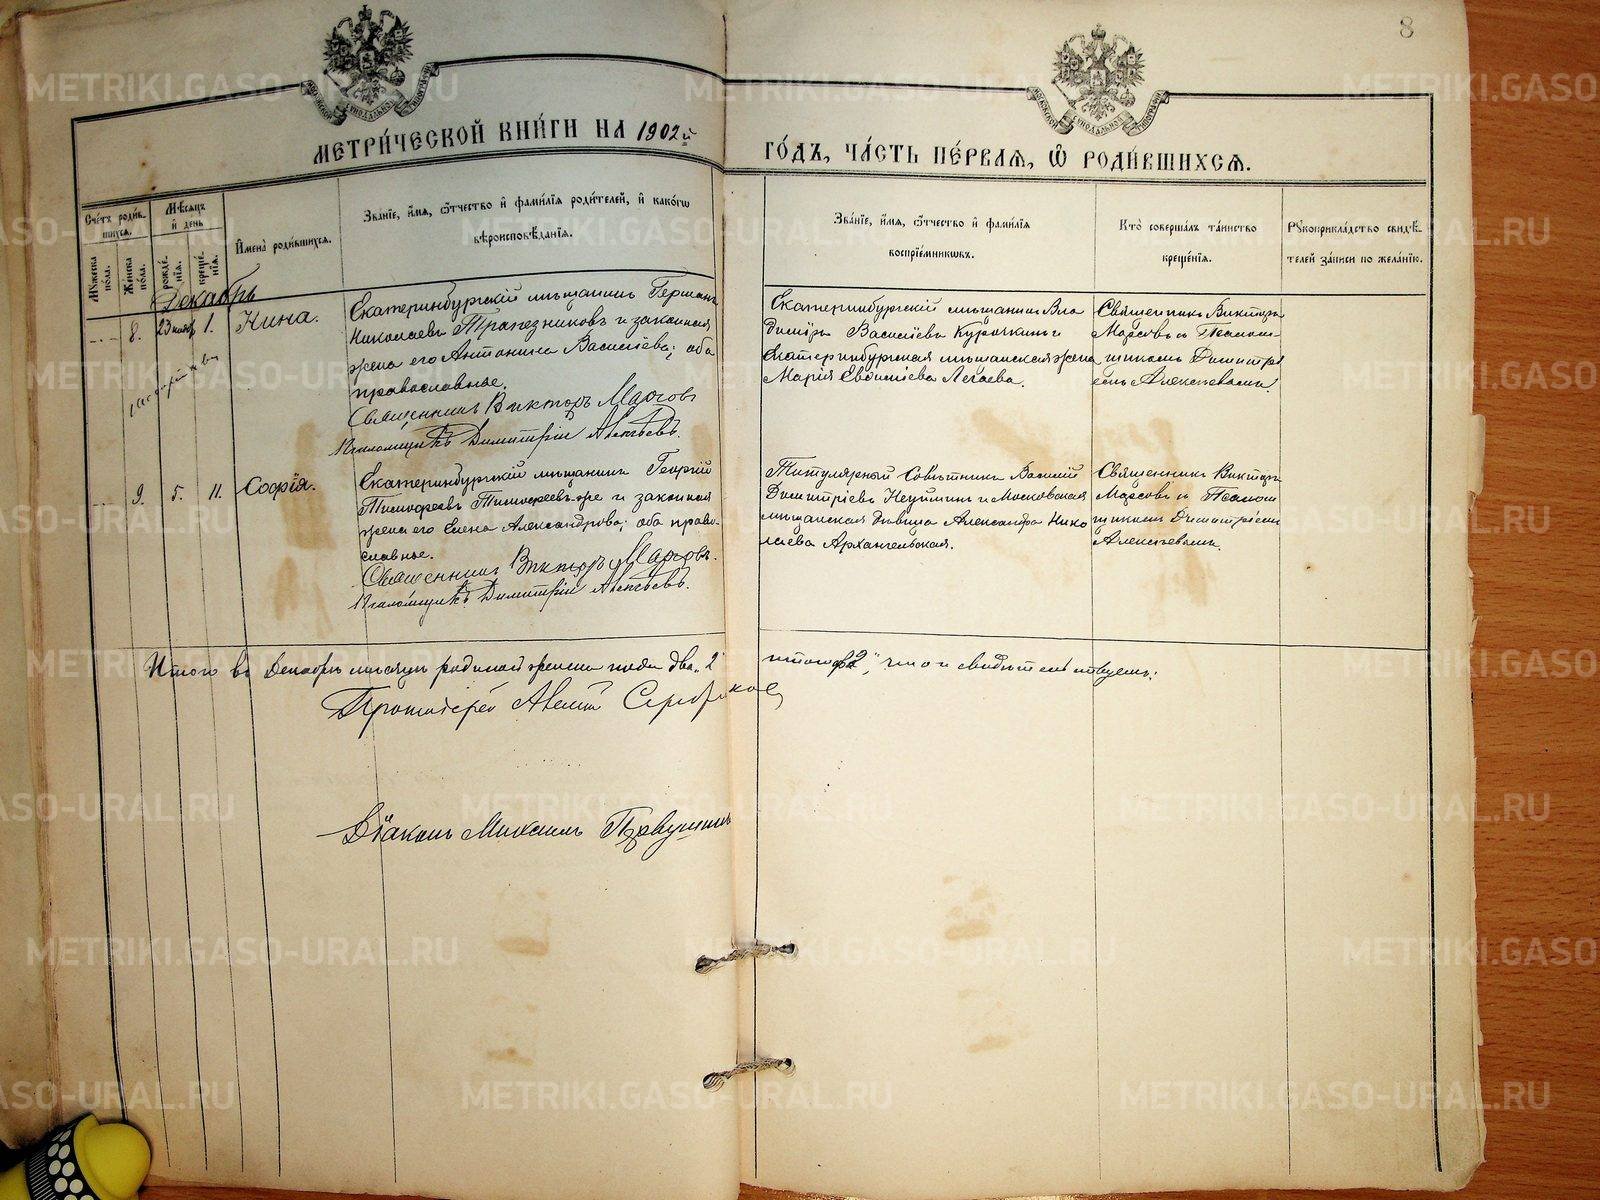 8
МЕТРИ́ЧЕСКОЙ КНИ́ГИ НА 1902й
ГО́ДЪ, ЧА́СТЬ ПЕ́РВАЯ, Ѿ РОДИ́ВШИХСЯ.
Сче́тъ роди́в-
шихся.
Му́жеска по́ла.
Же́нска по́ла.
Мѣ́сяцъ и де́нь
рожде́нія.
креще́нія.
Имена̀ роди́вшихся.
Зва́ніе, и́мя, ѻ́тчество и фами́лія роди́телей, и како́гѡ
вѣроисповѣ́данія.
Зва́ніе, и́мя, ѻ́тчество и фами́лія
воспріе́мникѡвъ.
Кто̀ соверша́лъ та́инство
креще́нія.
Рукоприкла́дство свидѣ́-
телей за́писи по жела́нію.
Декабрь
8. 23 нояб. 1.
Нина.
Екатеринбургскій мѣщанинъ Германъ
Николаевъ Трапезниковъ и законная
жена его Антонина Васильева; оба
православные.
Священникъ Викторъ
Псаломщикъ Димитрій
Екатеринбургскій мѣщанинъ Вла
димiръ Васильевъ Курочкинъ и
Екатеринбургская мѣщанская жена
Марія
Священникъ Викторъ
съ Псалом-
щикомъ Димитрi
емъ Алексѣевымъ
9. 5. 11.
Софія.
Екатеринбургскій мѣщанинъ Георгій
Тимофеевъ Тимофеевъ же и законная
жена его Елена Александрова; оба право-
славные.
Священникъ Викторъ
Псаломщикъ Димитрій
Титулярный Совѣтникъ Василій
Димитріевъ и Московская
мѣщанская дѣвица Александра Нико
лаева Архангельская.
Священникъ Викторъ
съ Псалом
щикомъ Димитріемъ
Алексѣевымъ.
Итого въ Декабрѣ мѣсяцѣ родилось женска пола два „2“
итого „2“, что и свидѣтельствуемъ:
Протоіерей
Діаконъ Михаилъ
METRIKI.GASO-URAL.RU